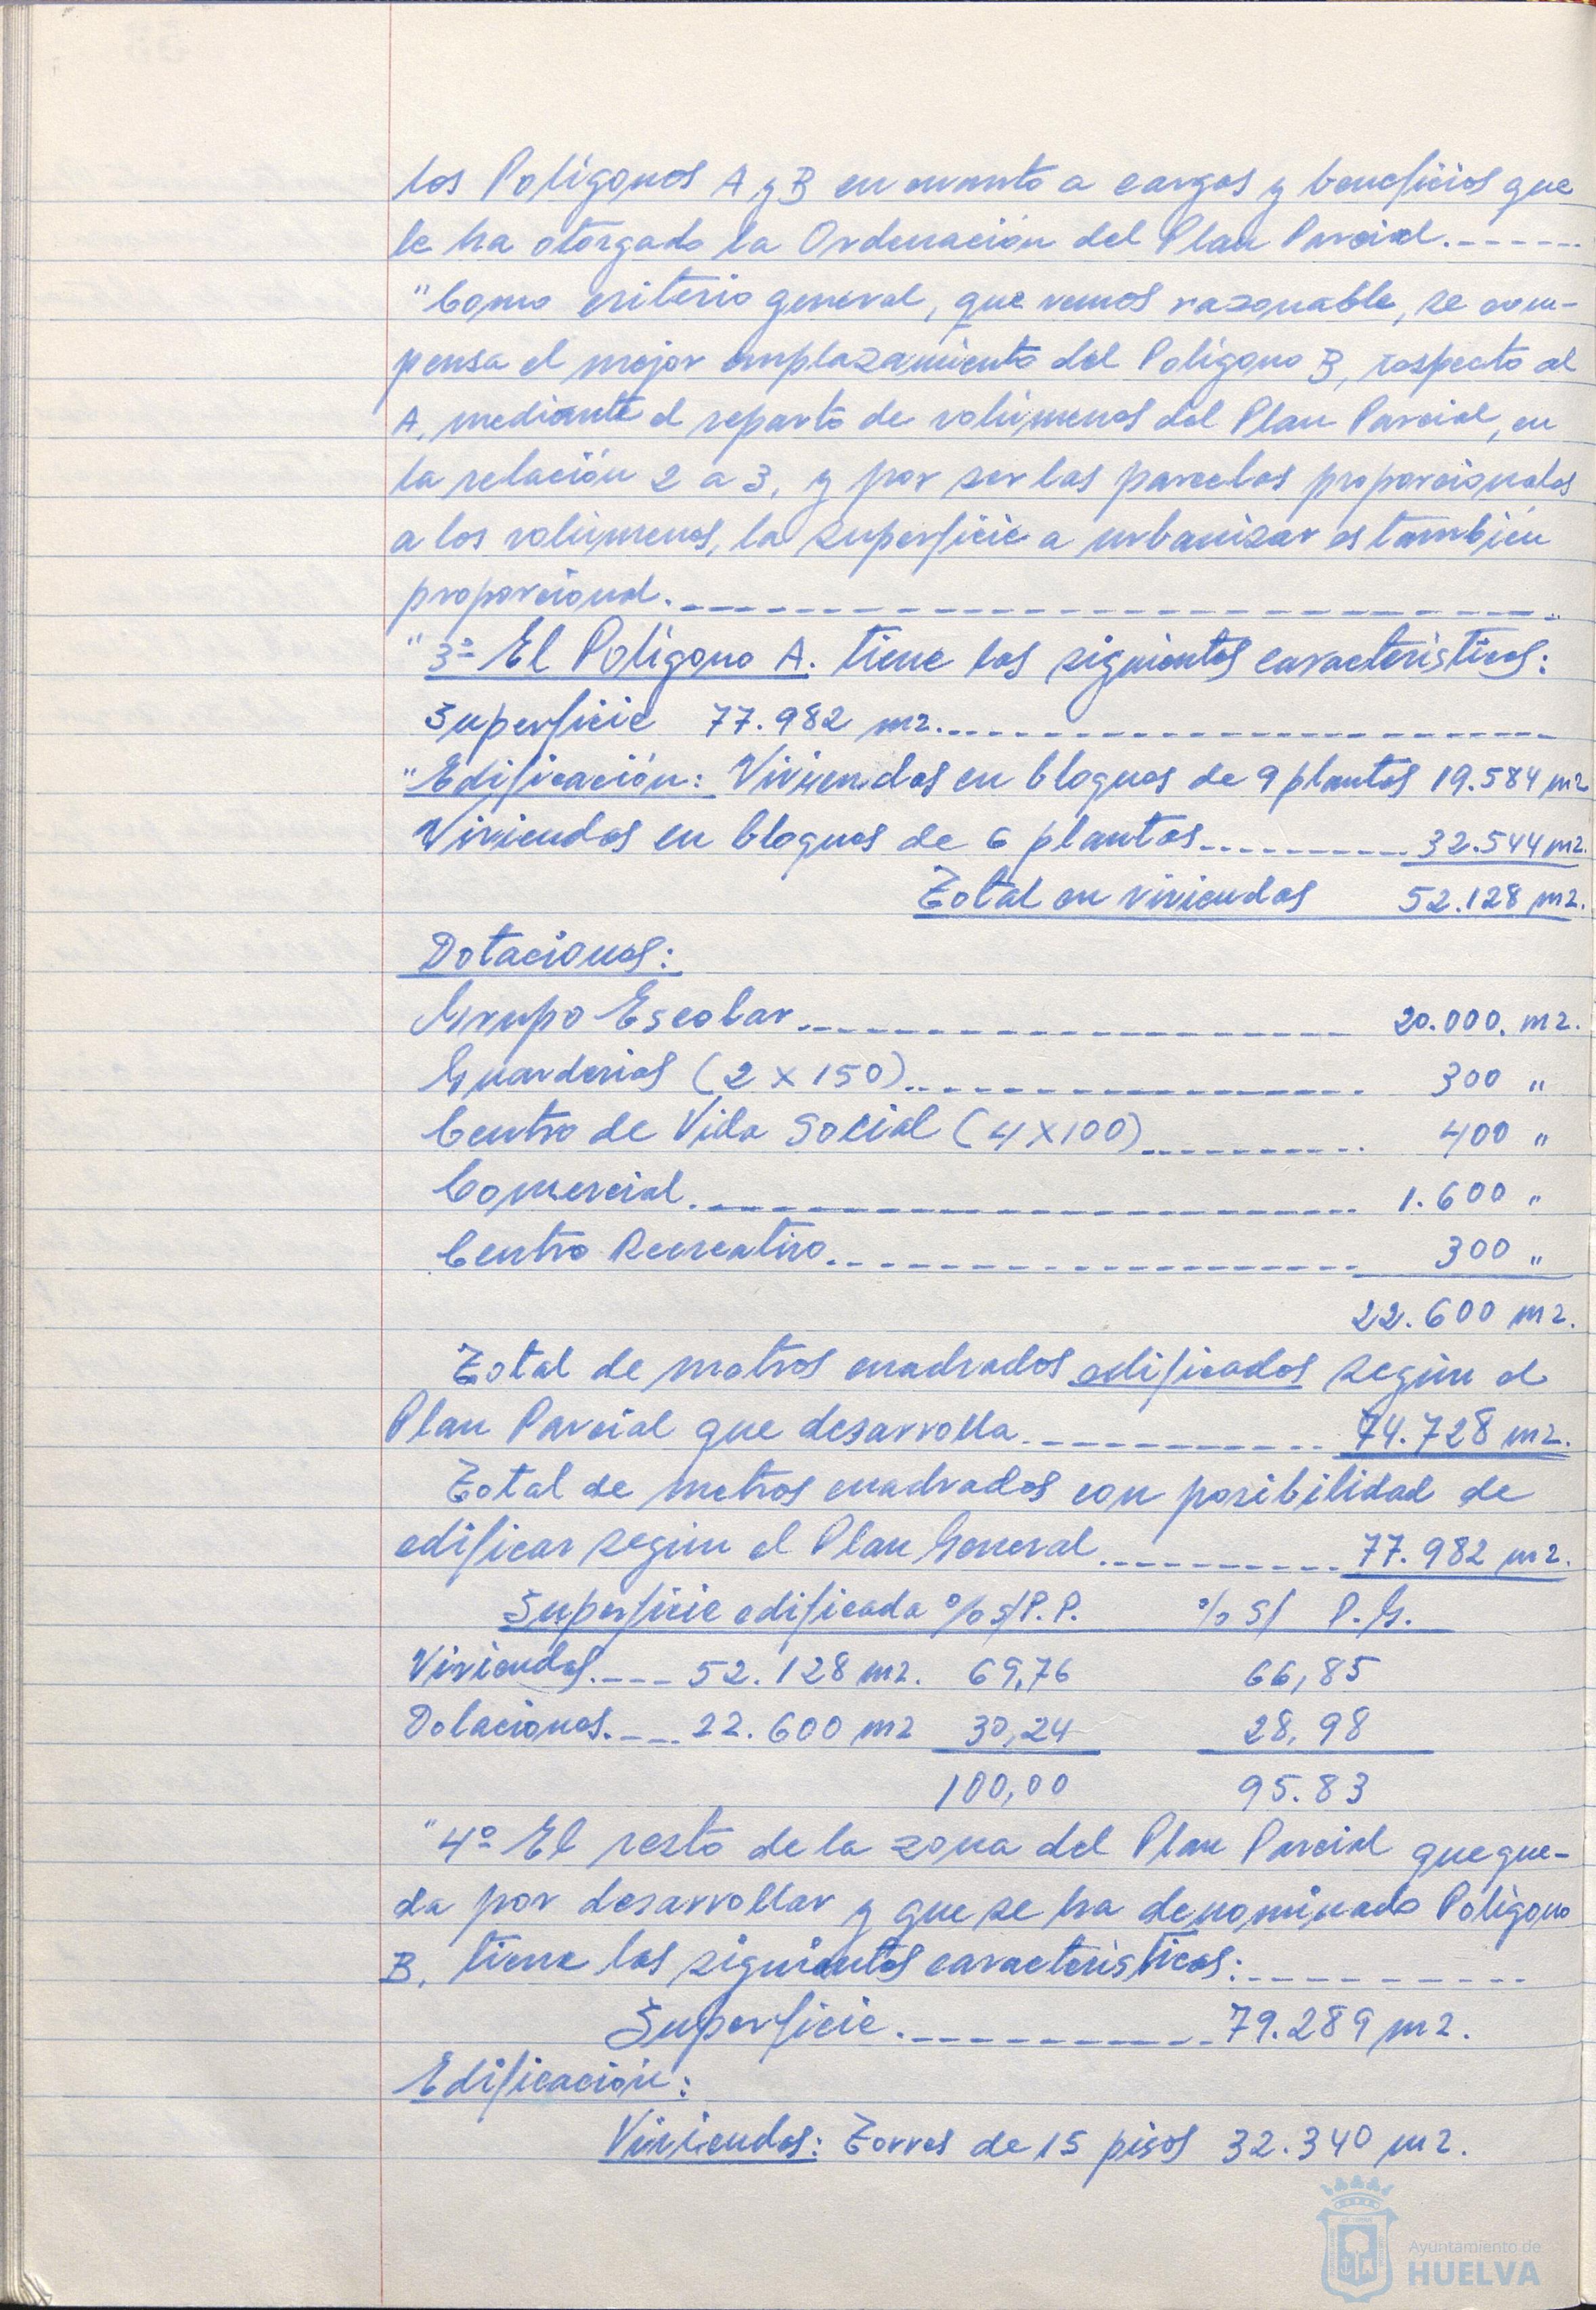 los Polígonos A y B en cuanto a cargas y beneficios que
le ha otorgado la Ordenación del Plan Parcial.------
"Como criterio general, que vemos razonable, se com-
pensa el mejor emplazamiento del Polígono B, respecto al
A, mediante el reparto de volúmenes del Plan Parcial, en
la relación 2 a 3, y por ser las parcelas proporcionales
a los volúmenes, la superficie a urbanizar es también
proporcional.------
"3º El Polígono A. tiene las siguientes características:
Superficie 77.982 m2.------
"Edificación: Viviendas en bloques de 9 plantas 19.584 m2
Viviendas en bloques de 6 plantas.------ 32.544 m2.
Total en viviendas 52.128 m2.
Dotaciones:
Grupo Escolar.------ 20.000. m2.
Guarderias (2 x 150).------ 300 "
Centro de Vida Social (4 x 100)------ 400 "
Comercial.------ 1.600 "
Centro Recreativo.------ 300 "
22.600 m2.
Total de metros cuadrados edificados según el
Plan Parcial que desarrolla.------ 74.728 m2.
Total de metros cuadrados con posibilidad de
edificar según el Plan General.------ 77.982 m2.
Superficie edificada % s/P.P. % S/ P.G.
Viviendas.---- 52.128 m2. 69,76 66,85
Dotaciones.---- 22.600 m2 30,24 28,98
100,00 95.83
"4º El resto de la zona del Plan Parcial que que-
da por desarrollar y que se ha denominado Polígono
B, tiene las siguientes características:------
Superficie.------ 79.289 m2.
Edificación:
Viviendas: Torres de 15 pisos 32.340 m2.
Ayuntamiento de
HUELVA